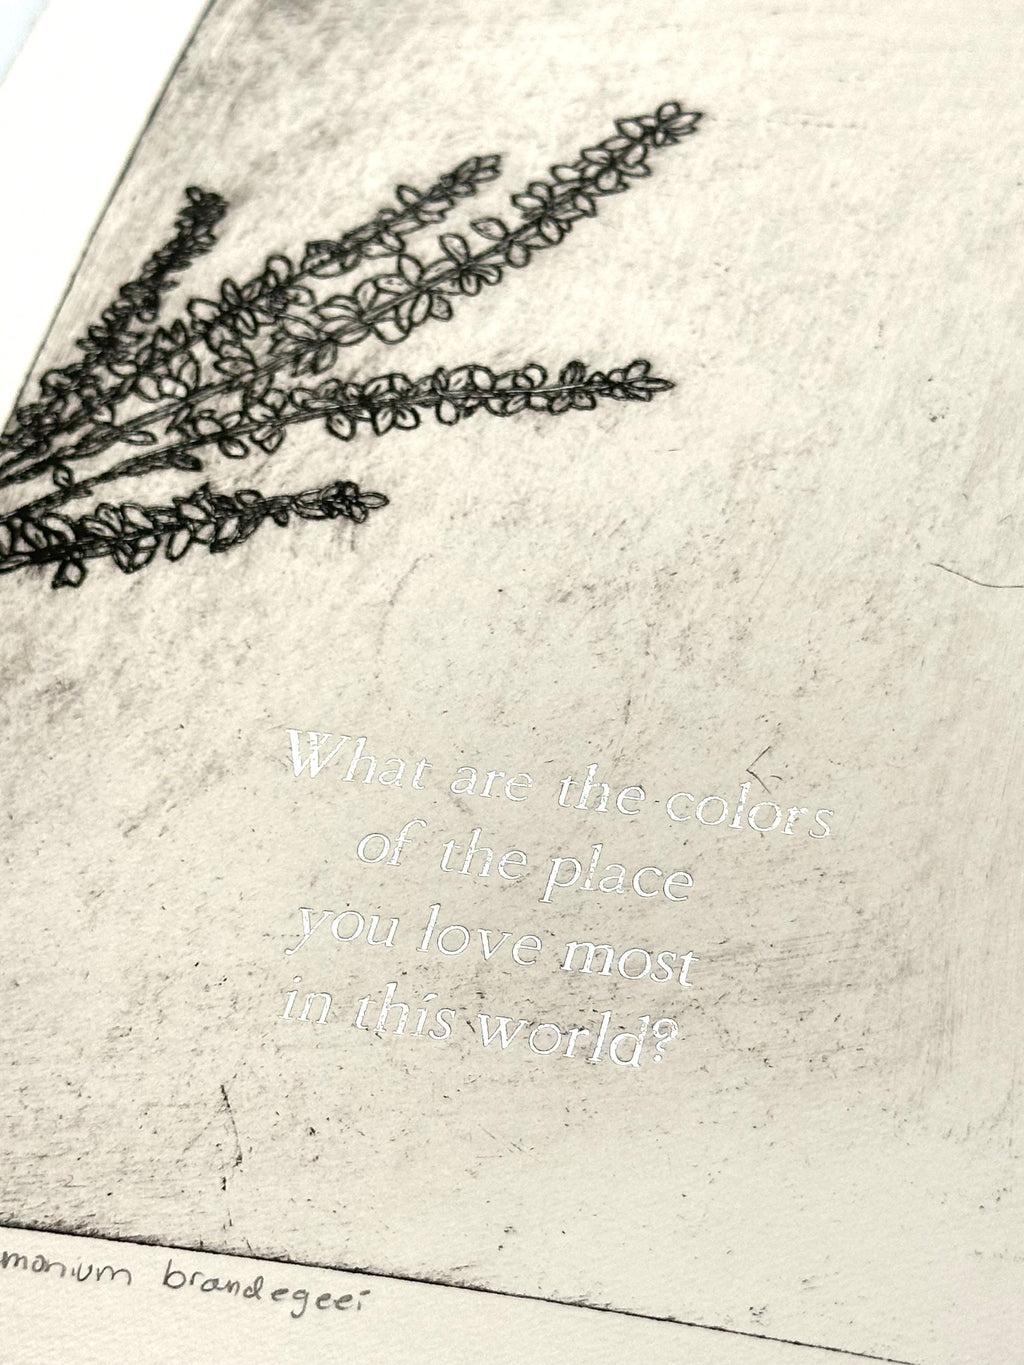 What are the colors
of the place
you love most
in this world?
monium brandegeei